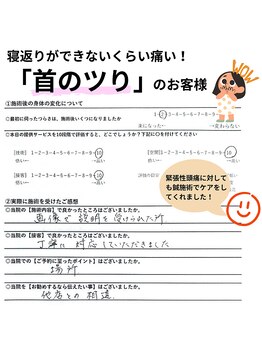 寝返りができないくらい痛い!
「首のツリ」のお客様
WOW
①施術後の身体の変化について
◎最初に伺ったつらさは、施術後いくつになりましたか
1-2-3-4-5-6-7-8-9-10
楽になった← →変わらない
◎本日の提供サービスを10段階で評価すると、どこでしょうか?下記に○を付けてください
[技術] 1-2-3-4-5-6-7-8-9-10
低い→高い
[接客] 1-2-3-4-5-6-7-8-9-10
低い→高い
緊張性頭痛に対して
も鍼施術でケアをし
てくれました!
②実際に施術を受けたご感想
◎当院の【施術内容】で良かったところはございましたか。
画像で説明を受けられた所
◎当院の【接客】で良かったところはございましたか。
丁寧に対応していただきました
◎当院での【ご予約に至ったポイント】はございましたか。
場所
◎当院を【お勧めするなら伝えたい事】はございましたか。
他店との相違